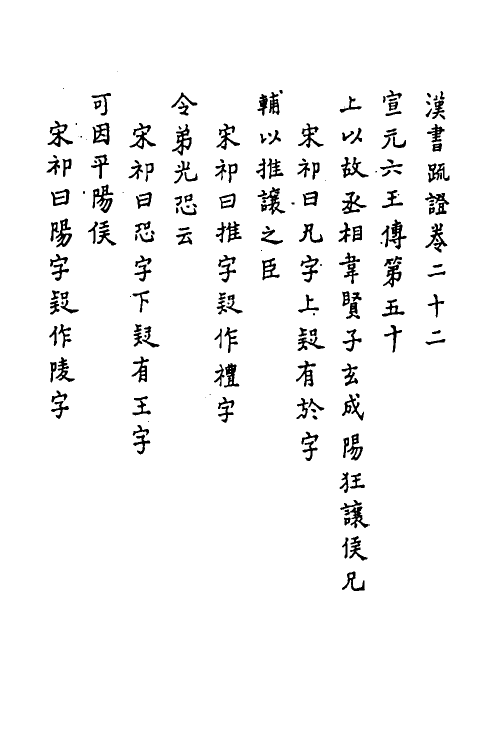 漢書疏證卷二十二
宣元六王傳第五十
上以故丞相韋賢子玄成陽狂讓侯兄
宋祁曰兄字上疑有於字
輔以推讓之臣
宋祁曰推字疑作禮字
令弟光恐云
宋祁曰恐字下疑有王字
可因平陽侯
宋祁曰陽字疑作陵字